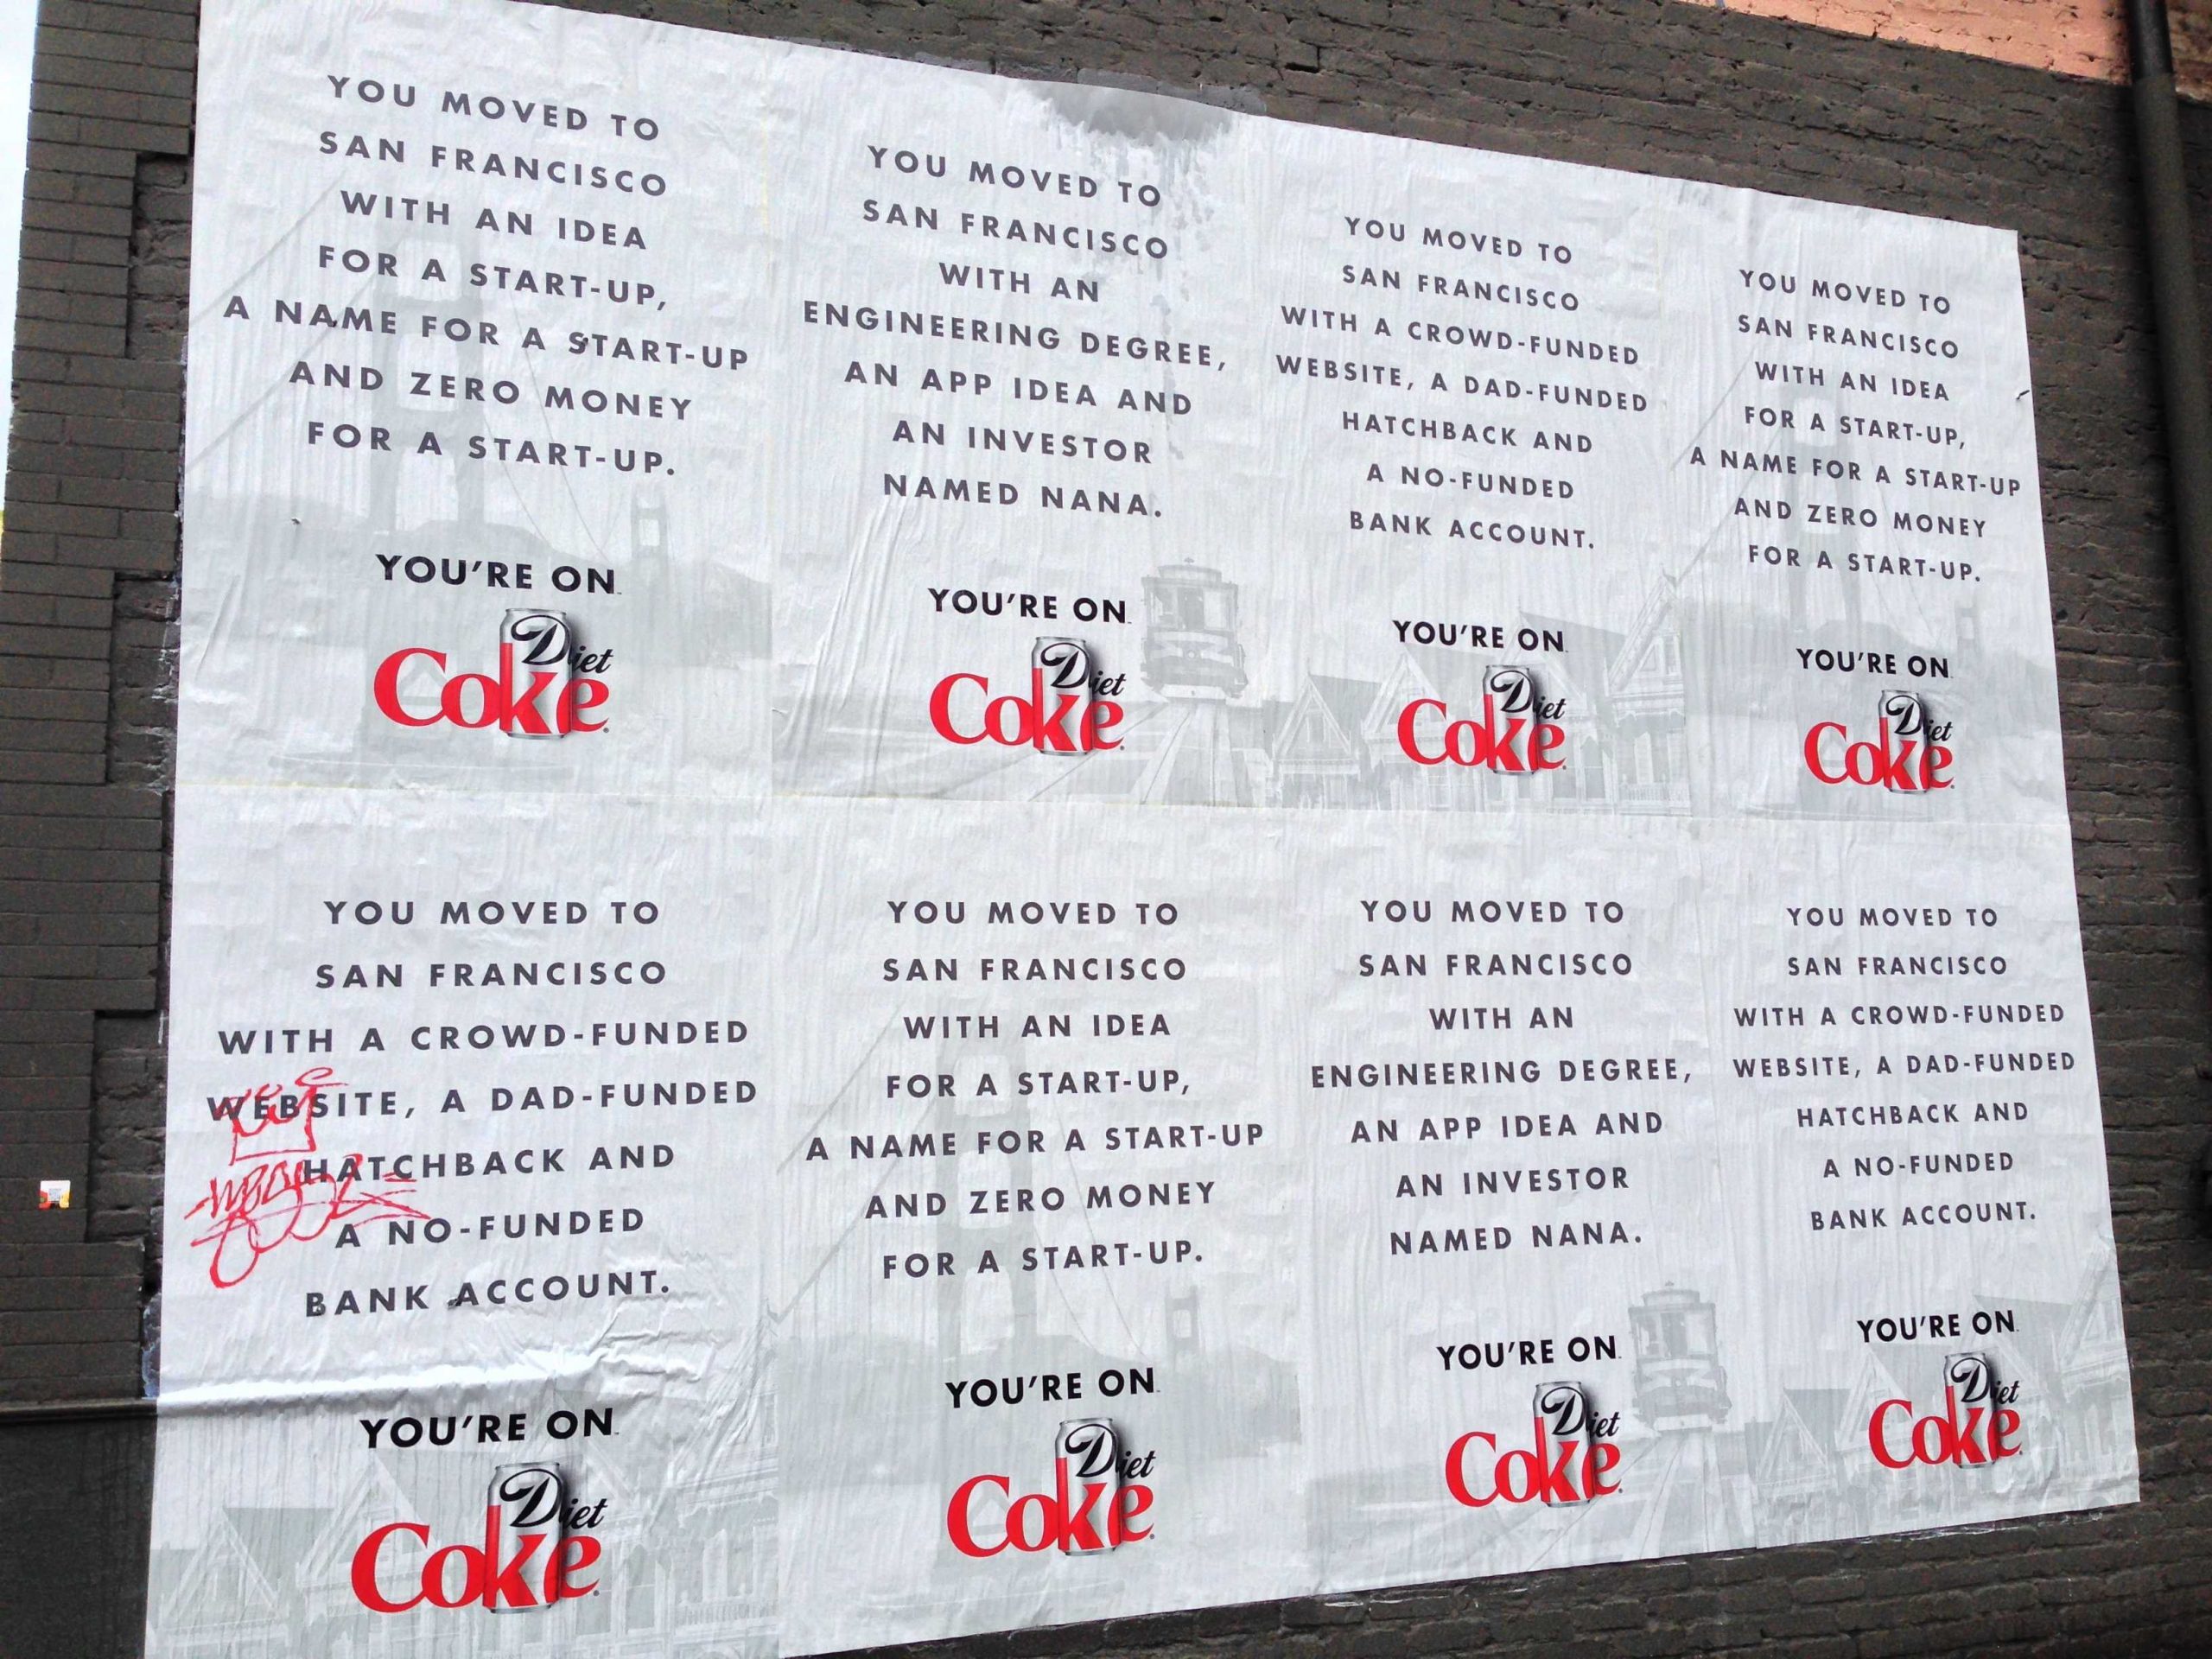 YOU MOVED TO
SAN FRANCISCO
WITH AN IDEA
FOR A START-UP,
A NAME FOR A START-UP
AND ZERO MONEY
FOR A START-UP.
YOU'RE ON
Diet
Coke
YOU MOVED TO
SAN FRANCISCO
WITH AN
ENGINEERING DEGREE,
AN APP IDEA AND
AN INVESTOR
NAMED NANA.
YOU'RE ON
Diet
Coke
YOU MOVED TO
SAN FRANCISCO
WITH A CROWD-FUNDED
WEBSITE, A DAD-FUNDED
HATCHBACK AND
A NO-FUNDED
BANK ACCOUNT.
YOU'RE ON
Diet
Coke
YOU MOVED TO
SAN FRANCISCO
WITH AN IDEA
FOR A START-UP,
A NAME FOR A START-UP
AND ZERO MONEY
FOR A START-UP.
YOU'RE ON
Diet
Coke
YOU MOVED TO
SAN FRANCISCO
WITH A CROWD-FUNDED
WEBSITE, A DAD-FUNDED
HATCHBACK AND
A NO-FUNDED
BANK ACCOUNT.
YOU'RE ON
Diet
Coke
YOU MOVED TO
SAN FRANCISCO
WITH AN IDEA
FOR A START-UP,
A NAME FOR A START-UP
AND ZERO MONEY
FOR A START-UP.
YOU'RE ON
Diet
Coke
YOU MOVED TO
SAN FRANCISCO
WITH AN
ENGINEERING DEGREE,
AN APP IDEA AND
AN INVESTOR
NAMED NANA.
YOU'RE ON
Diet
Coke
YOU MOVED TO
SAN FRANCISCO
WITH A CROWD-FUNDED
WEBSITE, A DAD-FUNDED
HATCHBACK AND
A NO-FUNDED
BANK ACCOUNT.
YOU'RE ON
Diet
Coke